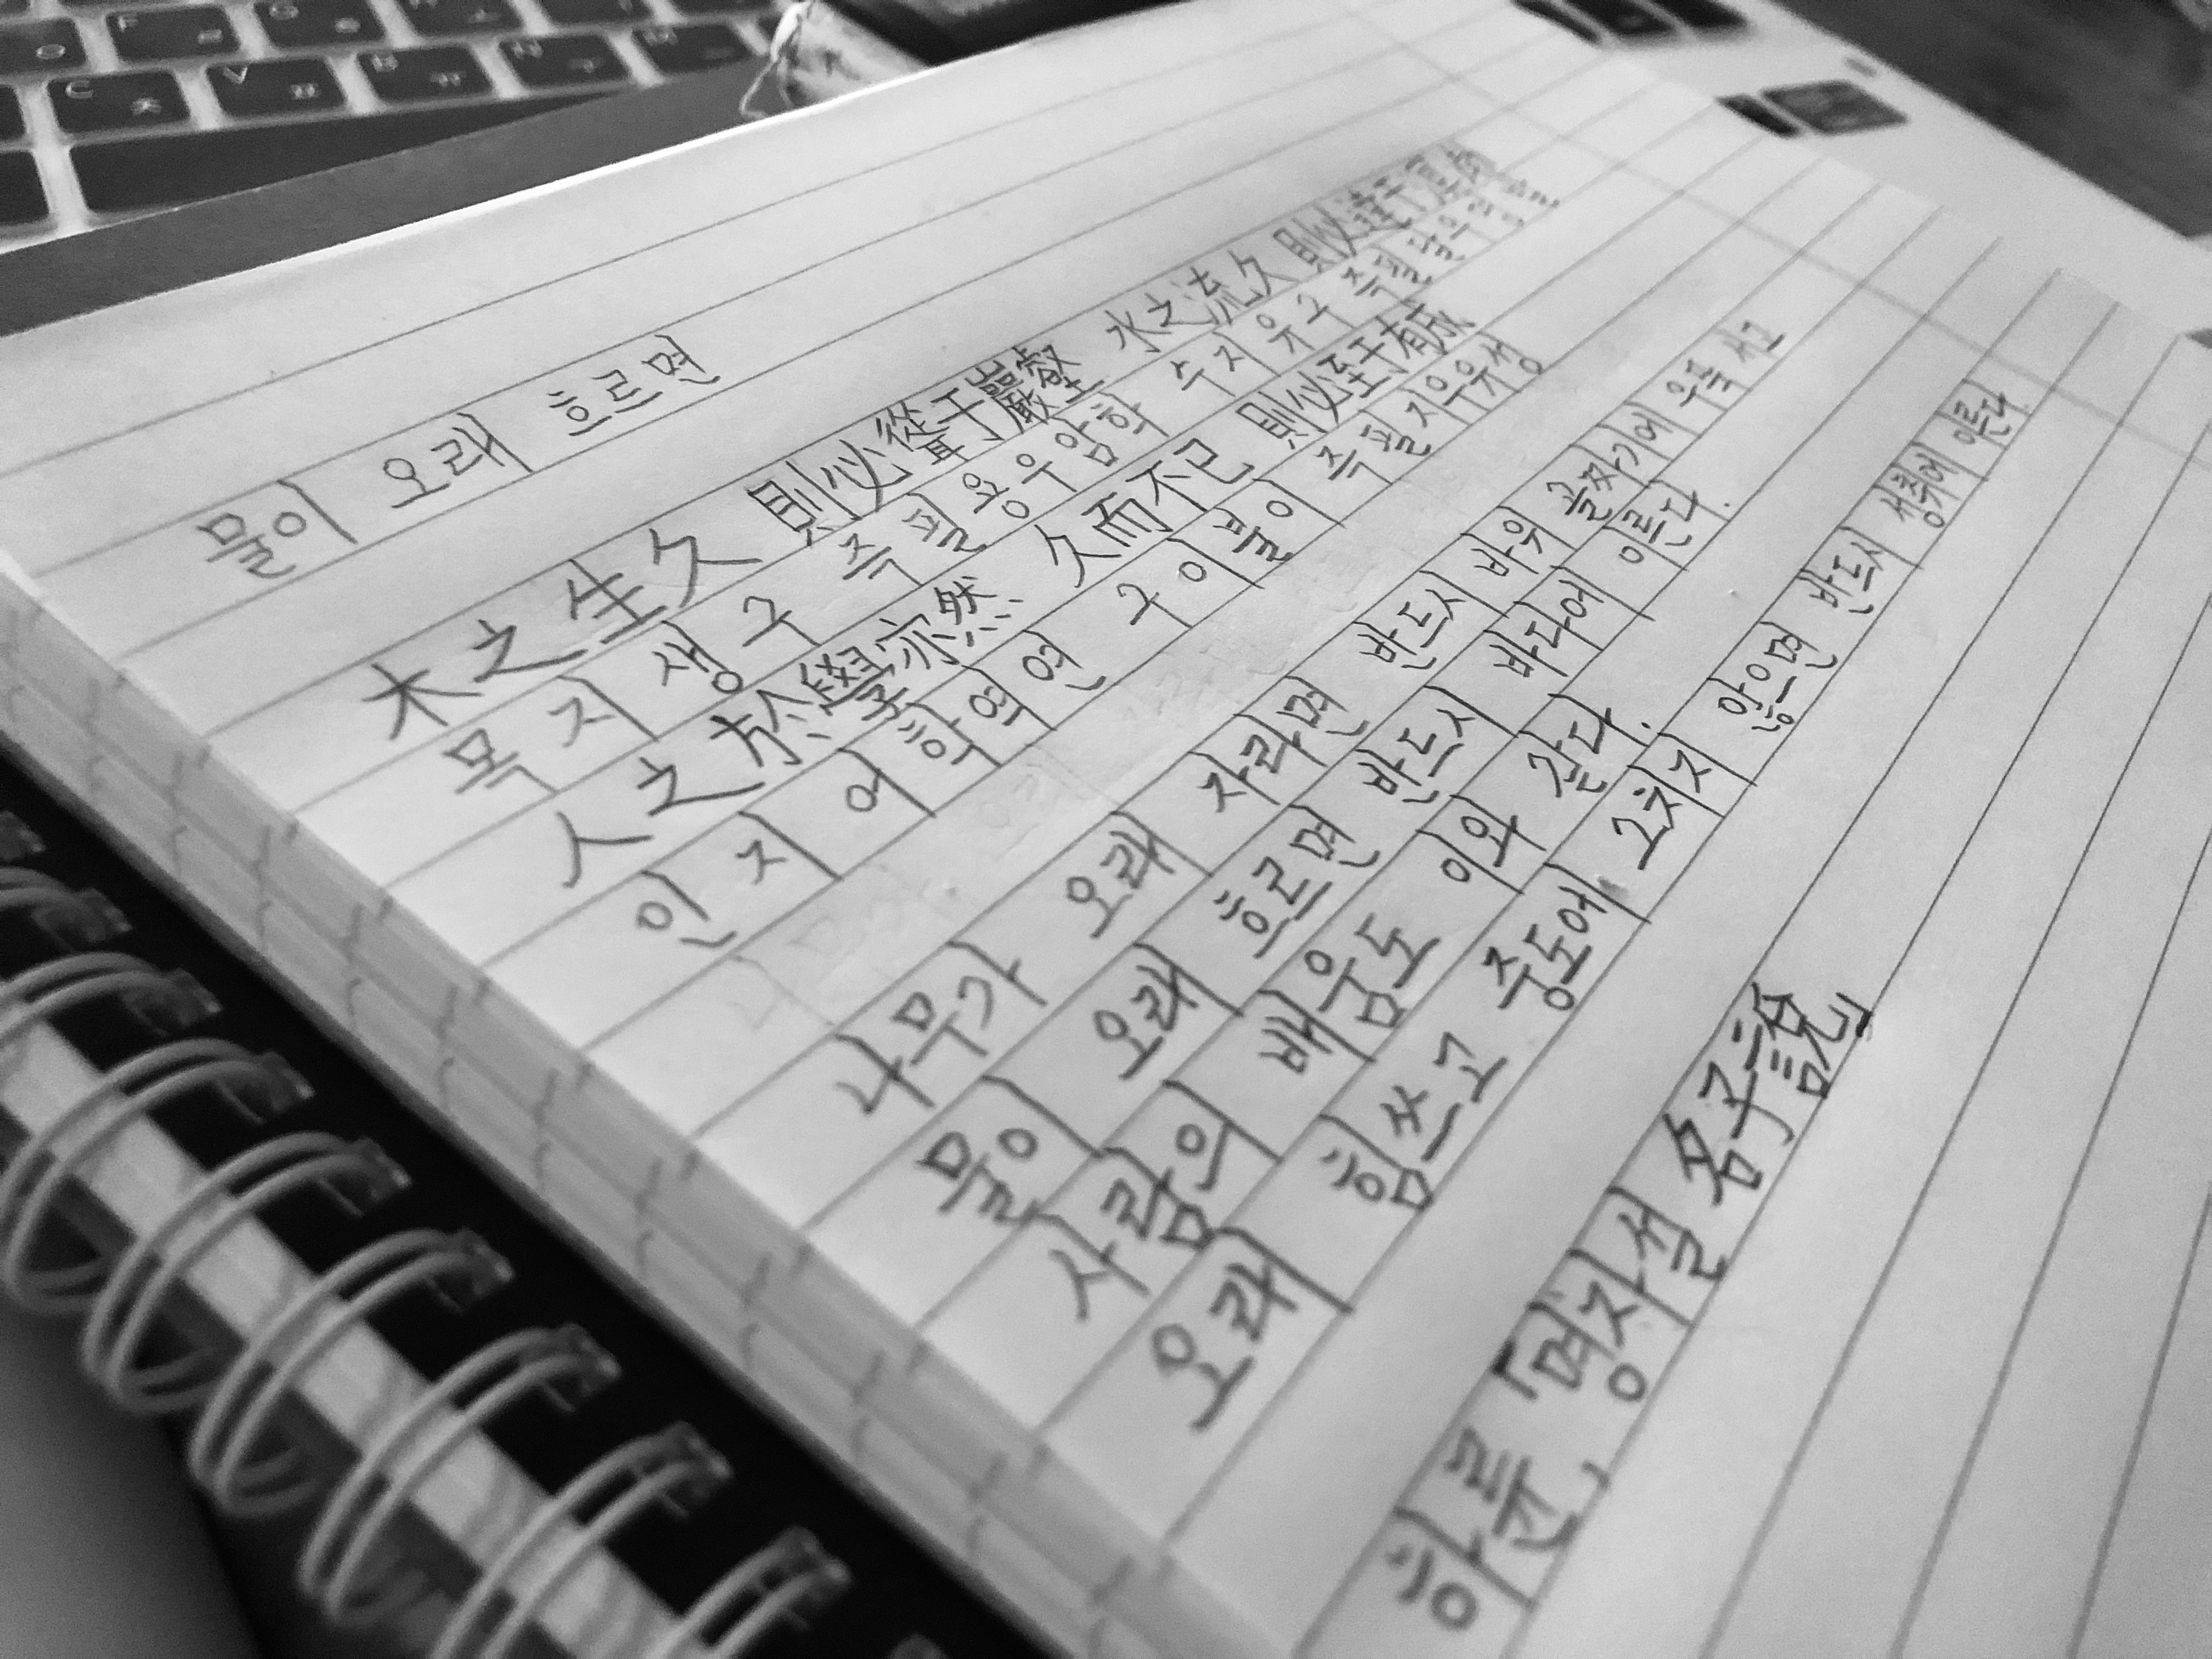 물이 오래 흐르면
木之生久 則必聳于巖壑 水之流久 則必達于
목지생구 즉필용우암학 수지유구 즉필달우
人之於學亦然 久而不已 則必至于有成
인지어학역연 구이불이 즉필지우유성
나무가 오래 자라면 반드시 바위 골짜기에 우뚝 서고
물이 오래 흐르면 반드시 바다에 이른다.
사람의 배움도 이와 같다.
오래 힘쓰고 중도에 그치지 않으면 반드시 성취에 이른다.
하륜, 「명자설 名子說」
C ㅊ V ㅍ B ㅠ N ㅜ
F ㄹ